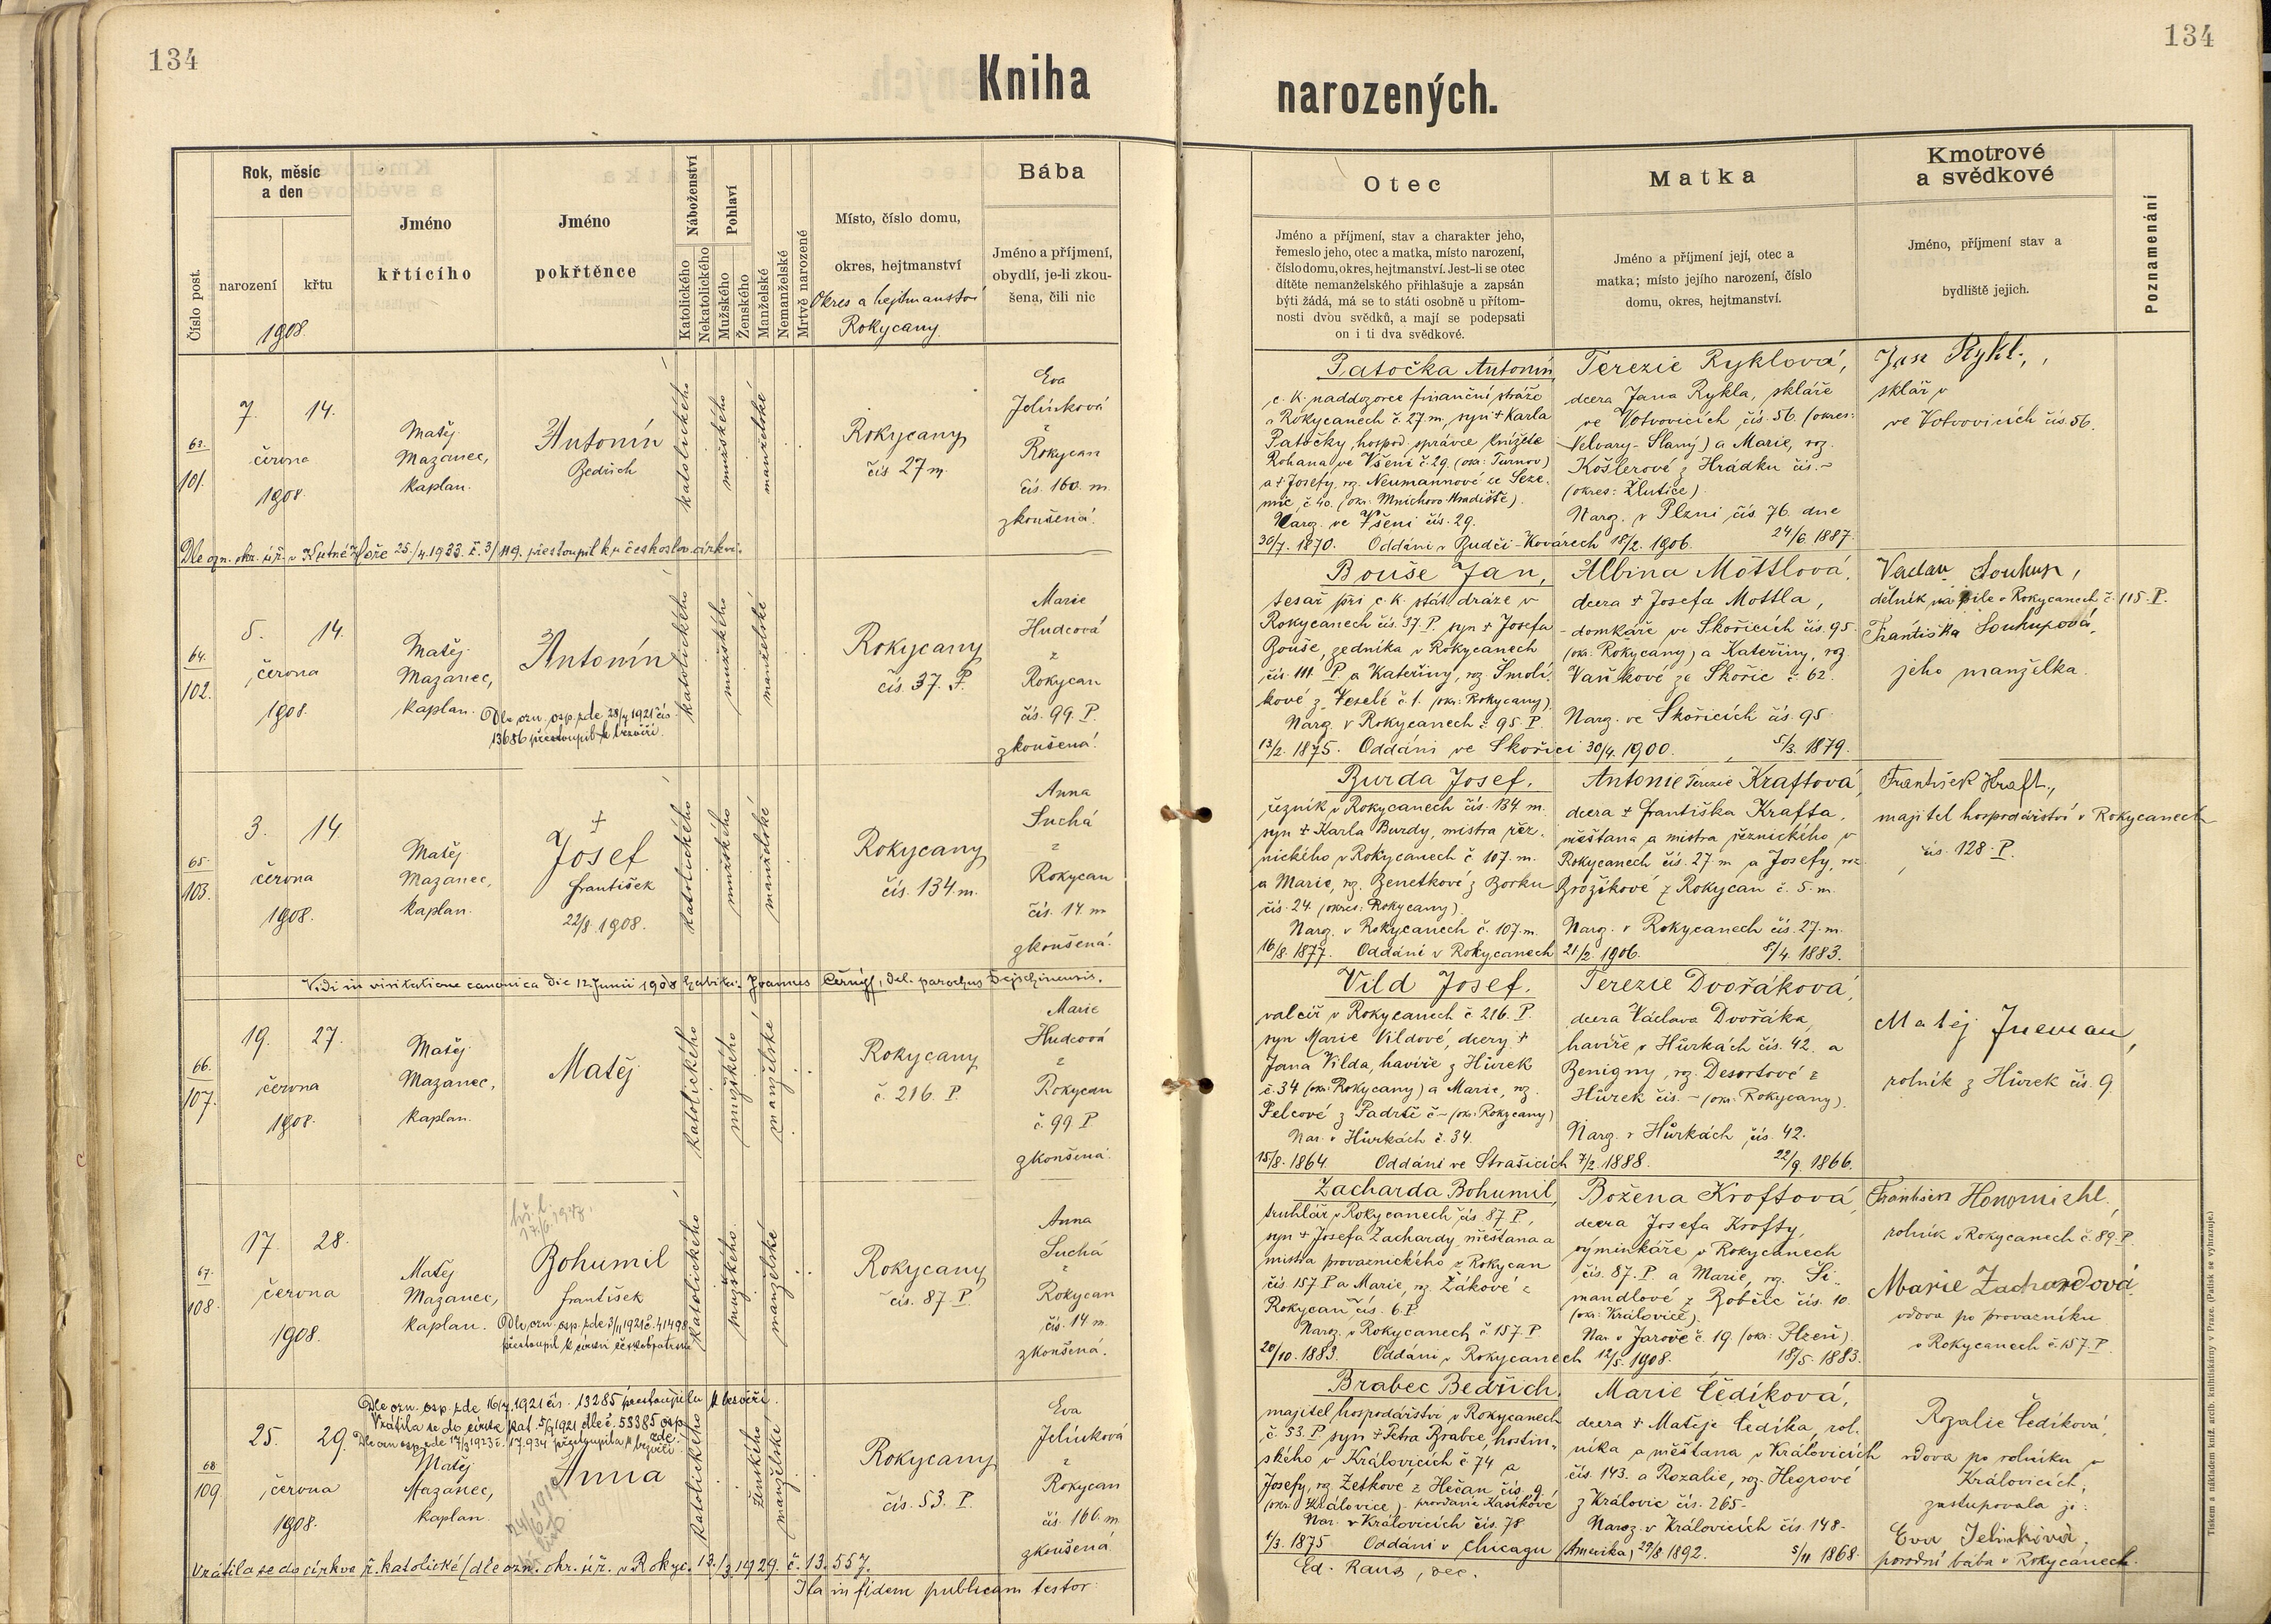 134
134
Kniha
narozených.
Číslo post.
Rok, měsíc
a den
narození
křtu
1908.
Jméno
křtícího
Jméno
pokřtěnce
Náboženství
Katolického
Nekatolického
Pohlaví
Mužského
Ženského
Manželské
Nemanželské
Mrtvě narozené
Místo, číslo domu,
okres, hejtmanství
Okres a hejtmanství
Rokycany
Bába
Jméno a příjmení,
obydlí, je-li zkou-
šena, čili nic
Otec
Jméno a příjmení, stav a charakter jeho,
řemeslo jeho, otec a matka, místo narození,
číslo domu, okres, hejtmanství. Jest-li se otec
dítěte nemanželského přihlašuje a zapsán
býti žádá, má se to státi osobně u přítom-
nosti dvou svědků, a mají se podepsati
on i ti dva svědkové.
Matka
Jméno a příjmení její, otec a
matka; místo jejího narození, číslo
domu, okres, hejtmanství.
Kmotrové
a svědkové
Jméno, příjmení stav a
bydliště jejich.
Poznamenání
63.
101.
7. 14.
června
1908.
Matěj
Mazanec,
kaplan.
Antonín
Bedřich
katolického
mužského
manželské
Rokycany
čís 27 m.
Eva
Jelínková
z
Rokycan
čís. 160. m.
zkoušená.
Patočka Antonín
c. k. naddozorce finanční stráže
v Rokycanech č. 27. m., syn + Karla
Patočky, hospod. správce knížete
Rohana ve Všeni č. 29. (okr: Turnov)
a + Josefy, roz. Neumannové ze Seze-
mic, č 40. (okr. Mnichovo-Hradiště).
Naroz. ve Všeni čís. 29.
30/7. 1870. Oddáni v Budči-Kovárech 18/2. 1906.
Terezie Ryklová,
dcera Jana Rykla, skláře
ve Votvovicích čís. 56. (okres:
Velvary-Slaný) a Marie, roz.
Košlerové z Hrádku čís. -
(okres: Žlutice).
Naroz. v Plzni čís. 76. dne
24/6 1887.
Rykl.,
sklář
ve Votvovicích čís. 56.
Dle ozn. okr. úř. v Kutné Hoře 25./4.1933. č. 3/119. přestoupil k u českoslov. církvi.
64.
102.
5. 14.
června
1908.
Matěj
Mazanec,
kaplan.
Antonín
Dle ozn. osp. zde 28/4 1921 čís
13686 přestoupil k bezvěří.
katolického
mužského
manželské
Rokycany
čís. 37. P.
Marie
Hudcová
z
Rokycan
čís. 99. P.
zkoušená.
Bouše Jan,
tesař při c. k. stát. dráze v
Rokycanech čís. 37. P. syn + Josefa
Bouše, zedníka v Rokycanech
čís. 111. P. a Kateřiny, roz Smolí-
kové z Veselé č. 1. (okr: Rokycany)
Naroz. v Rokycanech č 95. P.
13/2. 1875. Oddáni ve Skořici 30/4. 1900.
Albina Mottlová,
dcera + Josefa Mottla,
domkáře ve Skořicích čís. 95
(okr: Rokycany) a Kateřiny, roz.
Vaňkové ze Skořic č. 62.
Naroz. ve Skořicích čís. 95
5/3. 1879.
Václav Soukup,
dělník na pile v Rokycanech č. 115. P.
Františka Soukupová,
jeho manželka.
65.
103.
3. 14.
června
1908.
Matěj
Mazanec,
kaplan.
+
Josef
František
22/8 1908.
katolického
mužského
manželské
Rokycany
čís. 134. m.
Anna
Suchá
z
Rokycan
čís. 14. m
zkoušená.
Burda Josef,
řezník v Rokycanech čís. 134 m.
syn + Karla Burdy, mistra řez-
nického v Rokycanech č. 107. m.
a Marie, roz. Benetkové z Borku
čís. 24. (okres: Rokycany)
Naroz. v Rokycanech č. 107. m.
16/8. 1877. Oddáni v Rokycanech 21/2. 1906.
Antonie Terezie Kraftová,
dcera + Františka Krafta,
měšťana a mistra řeznického v
Rokycanech čís. 27. m a Josefy, roz.
Brožíkové z Rokycan č. 5. m.
Naroz. v Rokycanech čís. 27. m.
8/4. 1883.
František Kraft,
majitel hospodářství v Rokycanech
čís. 128. P.
Vidi in visitatione canonica die 12. Junii 1908 Joannes Černý, del. parochus
66.
107.
19. 27.
června
1908.
Matěj
Mazanec,
kaplan.
Matěj
katolického
mužského
manželské
Rokycany
č. 216. P.
Marie
Hudcová
z
Rokycan
č. 99. P
zkoušená.
Vild Josef.
valcíř v Rokycanech č. 216. P.
syn Marie Vildové, dcery +
Jana Vilda, havíře z Hůrek
č. 34 (okr. Rokycany) a Marie, roz.
Pelcové z Padrtě č - (okr. Rokycany)
Nar. v Hůrkách č. 34.
15/8. 1864. Oddáni ve Strašicích 7/2. 1888.
Terezie Dvořáková,
dcera Václava Dvořáka,
havíře v Hůrkách čís. 42. a
Benigny, roz. Desortové z
Hůrek čís. - (okr: Rokycany).
Naroz. v Hůrkách čís. 42.
22/9. 1866.
Matěj
rolník z Hůrek čís. 9.
67.
108.
17. 28.
června
1908.
Matěj
Mazanec,
kaplan.
Bohumil
František
Dle ozn. osp. zde 3/11 1921 č. 41498
přestoupil k církvi českobratrské
katolického
mužského
manželské
Rokycany
čís. 87. P.
Anna
Suchá
z
Rokycan
čís. 14 m.
zkoušená.
Zacharda Bohumil,
truhlář v Rokycanech čís. 87 P.,
syn + Josefa Zachardy, měšťana a
mistra provaznického z Rokycan
čís 157 P. a Marie, roz. Žákové z
Rokycan čís. 6. P.
Naroz. v Rokycanech č. 157. P.
20/10. 1883. Oddáni v Rokycanech 12/5. 1908.
Božena Kroftová,
dcera Josefa Krofty,
výminkáře v Rokycanech
čís. 87. P. a Marie, roz. Ši-
mandlové z Robčic čís. 10.
(okr: Kralovice).
Nar. v Jarově č. 19. (okr: Plzeň).
18/5. 1883.
František Honomichl,
rolník v Rokycanech č. 89. P.
Marie Zachardová,
vdova po provazníku
v Rokycanech č. 157. P.
68
109.
25. 29.
června
1908.
Dle ozn. osp. zde 16/4. 1921 čís. 13285 přestoupila k bezvěří.
Vrátila se do církve kat. 5/9 1921 dle č. 53385 osp. zde.
Dle ozn osp. zde 17/3 1923 č. 17.934 přestoupila k bezvěří.
Matěj
Mazanec,
kaplan.
Anna
katolického
ženského
manželské
Rokycany
čís. 53. P.
Eva
Jelínková
z
Rokycan
čís. 160. m.
zkoušená
Brabec Bedřich,
majitel hospodářství v Rokycanech
č. 53. P. syn + Petra Brabce, hostin-
ského v Kralovicích č 74 a
Josefy, roz. Žetkové z Hečan čís. 9.
(okr. Kralovice)
Nar. v Kralovicích čís. 78
1/3. 1875 Oddáni v Chicagu (Amerika) 29/8 1892.
Marie Čedíková,
dcera + Matěje Čedíka, rol-
níka a měšťana v Kralovicích
čís. 143. a Rozalie, roz. Hegrové
z Kralovic čís. 265.
Naroz. v Kralovicích čís. 148.
5/11 1868.
Rozalie Čedíková,
vdova po rolníku v
Kralovicích,
zastupovala ji:
Eva Jelínková,
porodní bába v Rokycanech.
Vrátila se do církve ř. katolické (dle ozn. okr. úř. v Rokyc. 12./3 1929. č. 13.557.
Ita in fidem publicam testor.
Ed. Raus, dec.
Tiskem a nákladem kníž. arcib. knihtiskárny v Praze. (Patisk se vyhrazuje.)